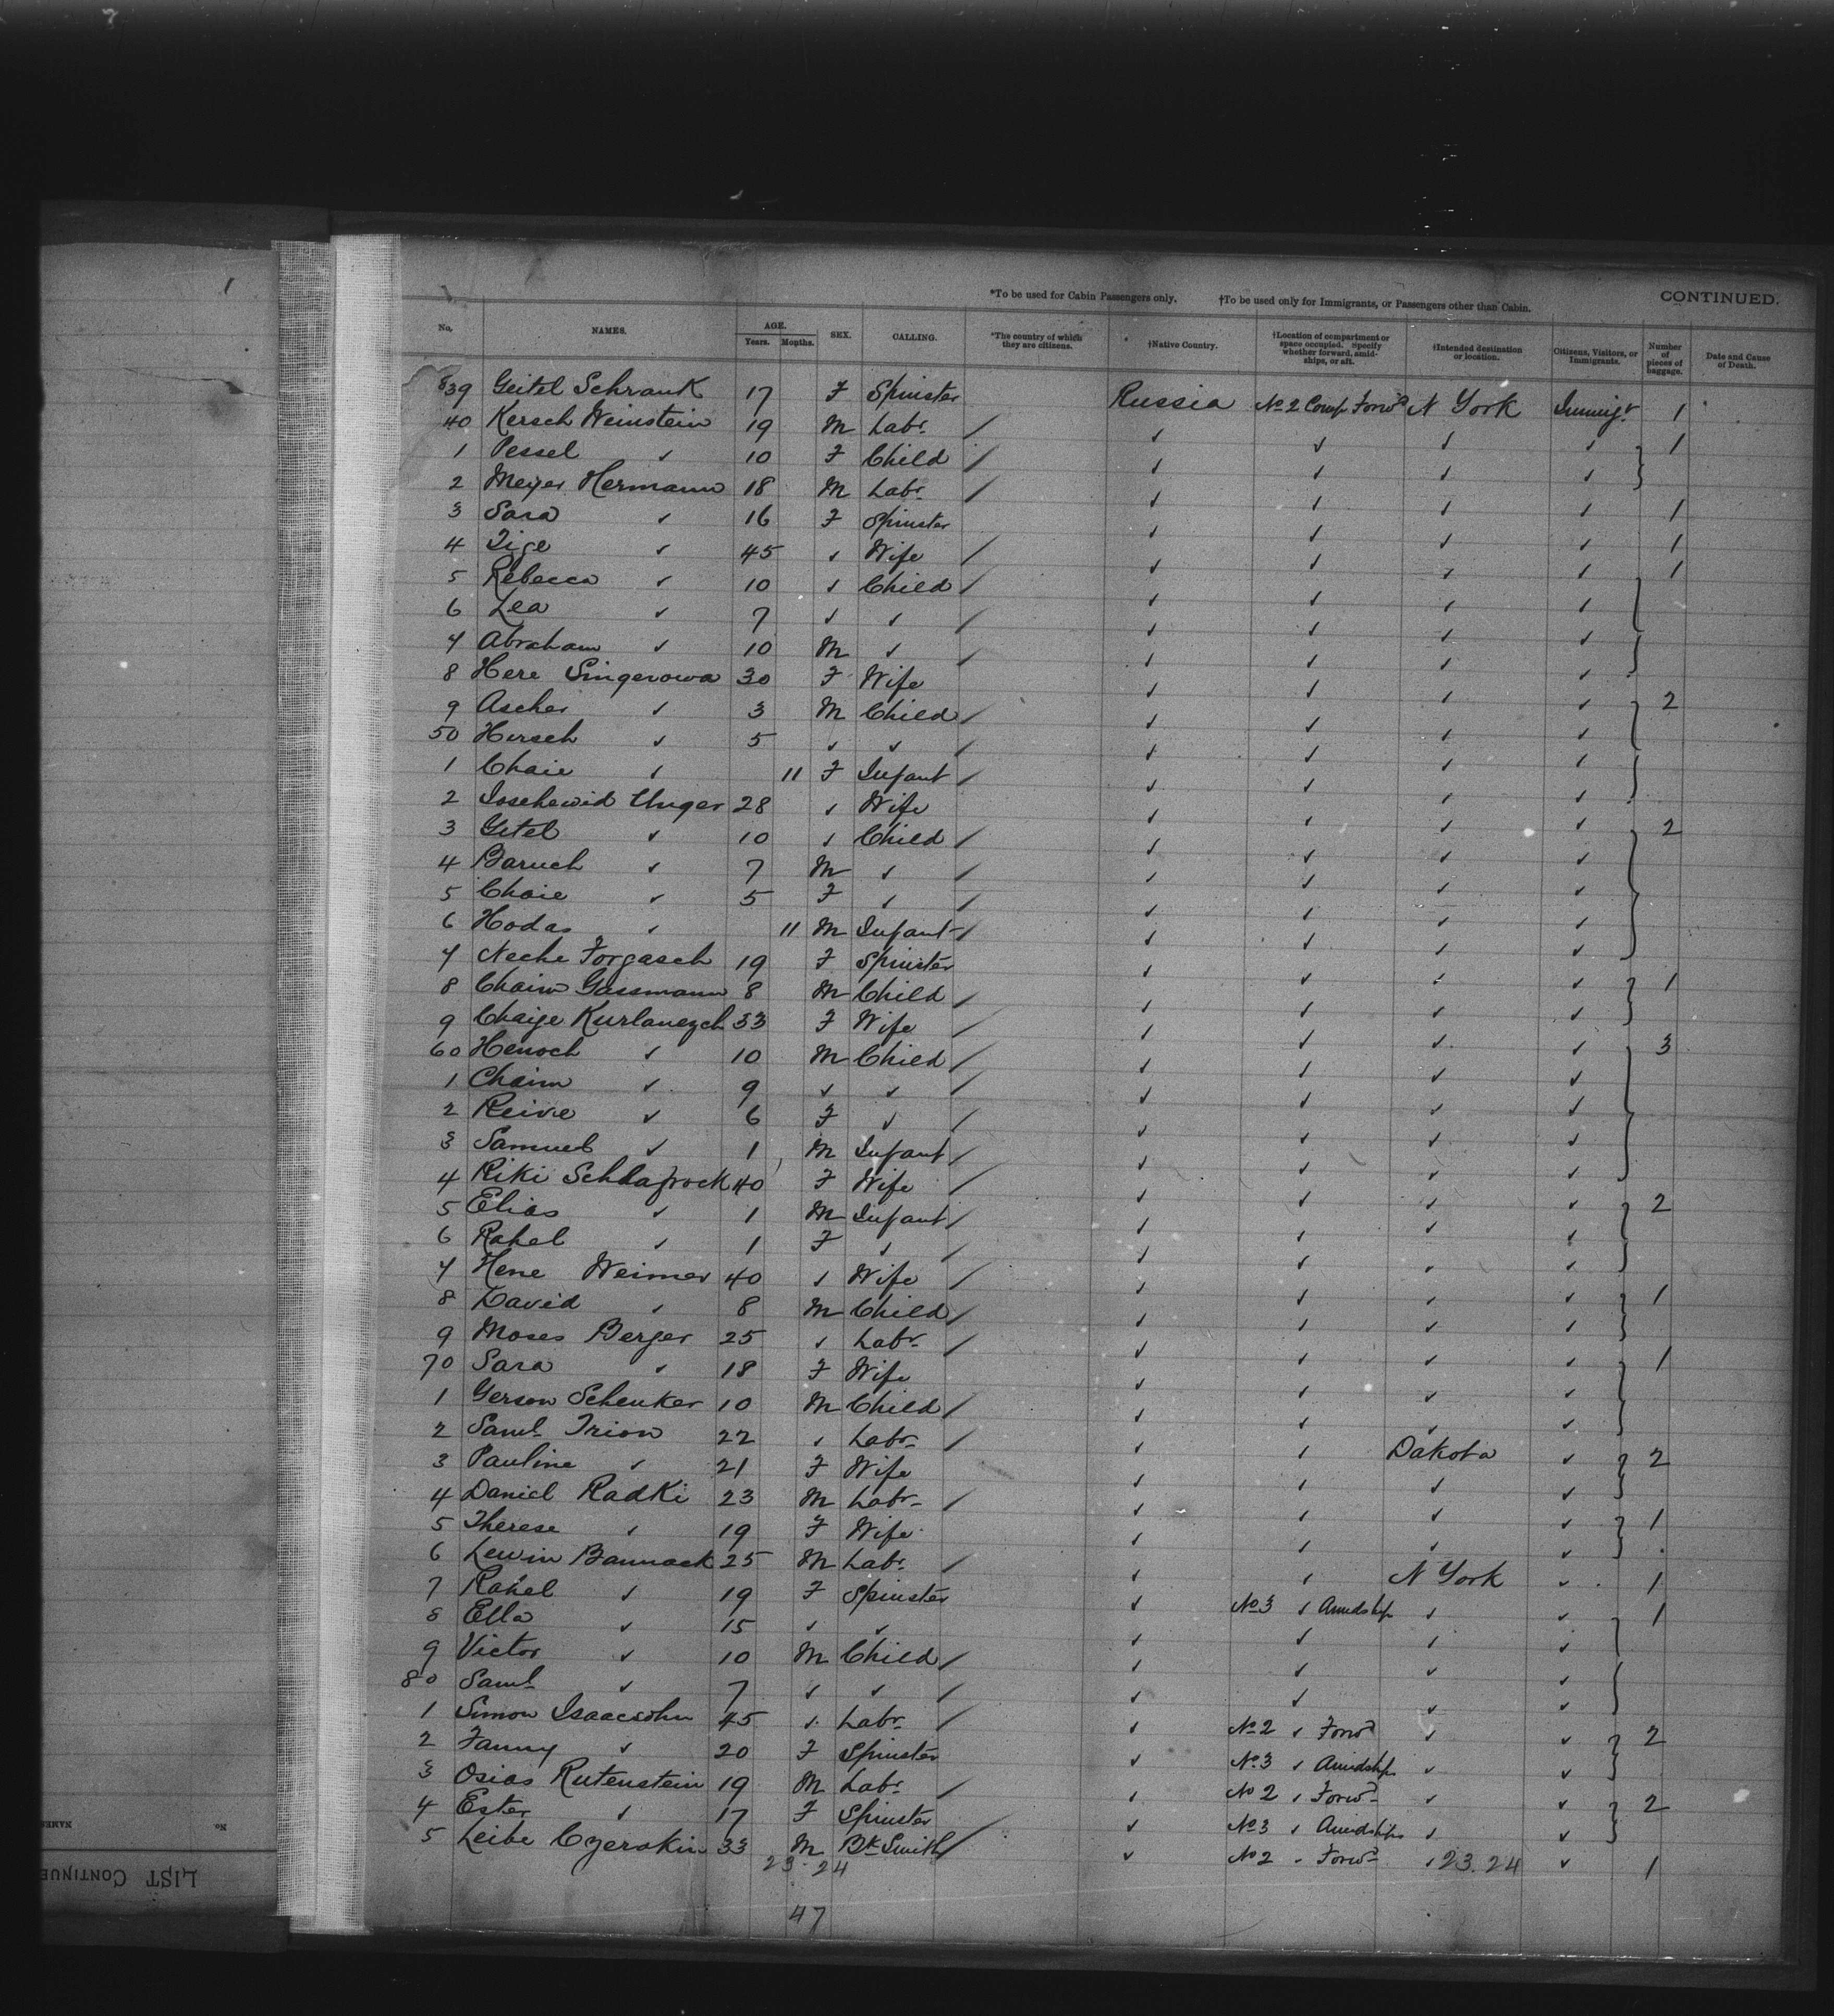 *To be used for Cabin Passengers only. †To be used only for Immigrants, or Passengers other than Cabin. CONTINUED.
No. NAMES. AGE. Years. Months. SEX. CALLING. *The country of which they are citizens. †Native Country. †Location of compartment or space occupied. Specify whether forward, amidships, or aft. †Intended destination or location. Citizens, Visitors, or Immigrants. Number of pieces of baggage. Date and Cause of Death.
839 Geitel Schrank 17 F Spinster Russia No 2 Comp Forwd N York Immigt 1
40 Kersch Weinstein 19 M Labr ✓ ✓ ✓ ✓ 1
1 Pessel ✓ 10 F Child ✓ ✓ ✓ ✓
2 Meyer Hermann 18 M Labr ✓ ✓ ✓ ✓ 1
3 Sara ✓ 16 F Spinster ✓ ✓ ✓ ✓ 1
4 Zige ✓ 45 ✓ Wife ✓ ✓ ✓ ✓ 1
5 Rebecca ✓ 10 ✓ Child ✓ ✓ ✓ ✓
6 Lea ✓ 7 ✓ ✓ ✓ ✓ ✓ ✓
7 Abraham ✓ 10 M ✓ ✓ ✓ ✓ ✓
8 Here Singerowa 30 F Wife ✓ ✓ ✓ ✓ 2
9 Ascher ✓ 3 M Child ✓ ✓ ✓ ✓
50 Hersch ✓ 5 ✓ ✓ ✓ ✓ ✓ ✓
1 Chaie ✓ 11 F Infant ✓ ✓ ✓ ✓
2 Joschewid Unger 28 ✓ Wife ✓ ✓ ✓ ✓ 2
3 Getel ✓ 10 ✓ Child ✓ ✓ ✓ ✓
4 Baruch ✓ 7 M ✓ ✓ ✓ ✓ ✓
5 Chaie ✓ 5 F ✓ ✓ ✓ ✓ ✓
6 Hodas ✓ 11 M Infant ✓ ✓ ✓ ✓
7 Neche Forgasch 19 F Spinster ✓ ✓ ✓ ✓ 1
8 Chaim Gassmann 8 M Child ✓ ✓ ✓ ✓
9 Chaije Kurlanezch 33 F Wife ✓ ✓ ✓ ✓ 3
60 Henoch ✓ 10 M Child ✓ ✓ ✓ ✓
1 Chaim ✓ 9 ✓ ✓ ✓ ✓ ✓ ✓
2 Reive ✓ 6 F ✓ ✓ ✓ ✓ ✓
3 Samuel ✓ 1 M Infant ✓ ✓ ✓ ✓
4 Riki Schlafrock 40 F Wife ✓ ✓ ✓ ✓ 2
5 Elias ✓ 1 M Infant ✓ ✓ ✓ ✓
6 Rahel ✓ 1 F ✓ ✓ ✓ ✓ ✓
7 Hene Weimer 40 ✓ Wife ✓ ✓ ✓ ✓ 1
8 David ✓ 8 M Child ✓ ✓ ✓ ✓
9 Moses Berger 25 ✓ Labr ✓ ✓ ✓ ✓ 1
70 Sara ✓ 18 F Wife ✓ ✓ ✓ ✓
1 Gerson Schenker 10 M Child ✓ ✓ ✓ ✓
2 Saml Trion 22 ✓ Labr ✓ ✓ Dakota ✓ 2
3 Pauline ✓ 21 F Wife ✓ ✓ ✓ ✓
4 Daniel Radki 23 M Labr ✓ ✓ ✓ ✓ 1
5 Therese ✓ 19 F Wife ✓ ✓ ✓ ✓
6 Lewin Bannack 25 M Labr ✓ ✓ N York ✓ 1
7 Rahel ✓ 19 F Spinster ✓ No 3 ✓ Amidship ✓ ✓ 1
8 Ella ✓ 15 ✓ ✓ ✓ ✓ ✓ ✓
9 Victor ✓ 10 M Child ✓ ✓ ✓ ✓
80 Saml ✓ 7 ✓ ✓ ✓ ✓ ✓ ✓
1 Simon Isaacsohn 45 ✓ Labr ✓ No 2 ✓ Forwd ✓ ✓ 2
2 Fanny ✓ 20 F Spinster ✓ No 3 ✓ Amidships ✓ ✓
3 Osias Rutenstein 19 M Labr ✓ No 2 ✓ Forwd ✓ ✓ 2
4 Ester ✓ 17 F Spinster ✓ No 3 ✓ Amidships ✓ ✓
5 Leibe Czerokin 33 M Bk Smith ✓ No 2 ✓ Forwd ✓ 23.24 ✓ 1
23.24
47
No. NAMES
LIST CONTINUE